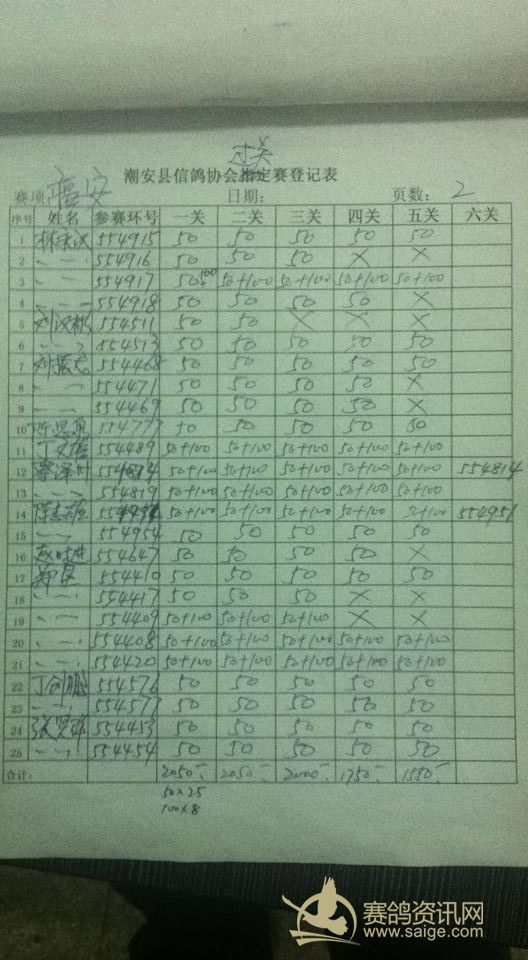 过关
潮安县信鸽协会指定赛登记表
赛项: 福安 日期: 页数: 2
序号 姓名 参赛环号 一关 二关 三关 四关 五关 六关
1 554915 50 50 50 50 50
2 〃 554916 50 50 50 × ×
3 〃 554917 50+100 50+100 50+100 50+100 50+100
4 〃 554918 50 50 50 50 ×
5 刘汉彬 554511 50 50 × × ×
6 〃 554513 50 50 50 50 50
7 554468 50 50 50 50 50
8 〃 554471 50 50 50 50 ×
9 〃 554469 50 50 50 50 ×
10 50 50 50 50 50
11 丁文雄 554489 50+100 50+100 50+100 50+100 50+100
12 蔡泽川 554814 50+100 50+100 50+100 50+100 50+100 554814
13 〃 554819 50+100 50+100 50+100 50+100 50+100
14 554951 50+100 50+100 50+100 50+100 50+100 554951
15 〃 554954 50 50 50 50 50
16 554647 50 50 50 50 ×
17 554410 50 50 50 50 50
18 〃 554417 50 50 50 × ×
19 〃 554409 50+100 50+100 50+100 × ×
20 〃 554408 50+100 50+100 50+100 50+100 50+100
21 〃 554420 50+100 50+100 50+100 50+100 50+100
22 丁剑鹏 554576 50 50 50 50 50
23 〃 554577 50 50 50 50 50
24 554453 50 50 50 50 50
25 〃 554454 50 50 50 50 50
合计: 2050- 2050- 2000- 1750- 1550-
50×25
100×8
赛鸽资讯网
www.saige.com